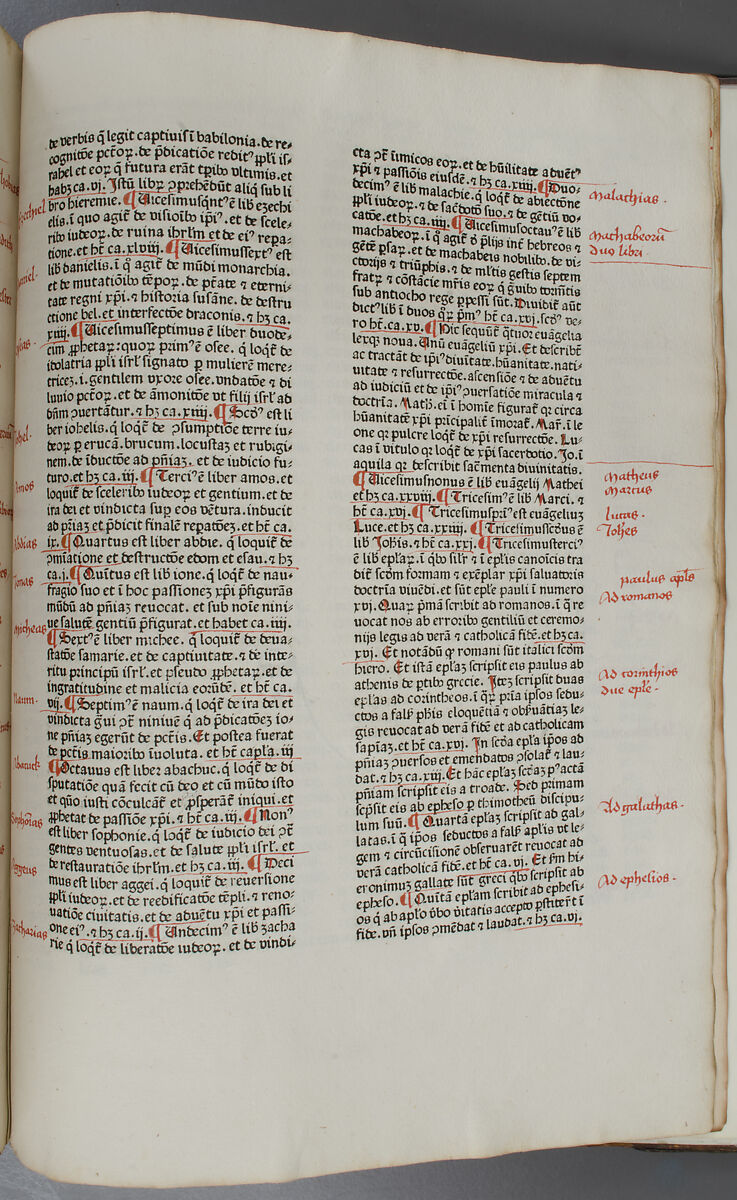 de verbis q̄ legit captiuis ī babilonia. de re-
cognitōe pctōꝝ. de p̄dicatiōe reditꝰ ppl̓i is-
rahel et eoꝝ q̄ futura erāt tꝑibꝰ vltimis. et
habꝫ ca. vj. Istū librꝫ ꝯp̄hēdūt aliq̄ sub li
bro hieremie. ¶ Uicesimusqn̄tꝰ ē lib̓ ezechi
elis. ī quo agit̄ de visioībꝰ ip̄iꝰ. et de scele-
ribꝰ iudeoꝝ. de ruina ihrl̄m et de eiꝰ repa-
tione. et hn̄t ca. xlviij. ¶ Uicesimussextꝰ est
lib̓ danielis. ī q̄ agit̄ de mūdi monarchia.
et de mutatiōibꝰ tēpoꝝ. de p̄tate ⁊ eterni-
tate regni xp̄i. ⁊ historia susāne. de destru
ctione bel. et interfectōe draconis. ⁊ hꝫ ca.
xiiij. ¶ Uicesimusseptimus ē liber duode-
cim ꝓphetaꝝ: quoꝝ primꝰ ē osee. q̄ loqt̄ de
idolatria ppl̓i isrl̓ signato ꝑ mulierē mere-
tricē. i. gentilem vxore osee. vndatōe ⁊ di
luuio pctōꝝ. et de āmonitōe vt filij isrl̓ ad
dn̄m ꝯuertātur. ⁊ hꝫ ca. xiiij. ¶ Scd̓s est li
ber iohelis. q̄ loqt̄ de ꝯsumptiōe terre iu-
deoꝝ ꝑ erucā. brucum. locustaꝫ et rubigi-
nem. de īductōe ad pn̄iaꝫ. et de iudicio fu-
turo. et hꝫ ca. iij. ¶ Terciꝰ ē liber amos. et
loquit̄ de sceleribꝰ iudeoꝝ et gentium. et de
ira dei et vindicta suꝑ eos vētura. inducit
ad pn̄iaꝫ et p̄dicit finalē repatōeꝫ. et hꝫ ca.
ix. ¶ Quartus est liber abdie. q̄ loquit̄ de
ꝯminatione et destructōe edom et esau. ⁊ hꝫ
ca. j. ¶ Quītus est lib̓ ione. q̄ loqt̄ de nau-
fragio suo et ī hoc passioneꝫ xp̄i p̄figurās
mūdū ad pn̄iaꝫ reuocat. et sub noīe nini-
ue salutē gentiū p̄figurat. et habet ca. iiij.
¶ Sextꝰ ē liber michee. q̄ loquit̄ de deua-
statōe samarie. et de captiuitate. ⁊ de inte-
ritu principū isrl̓. et pseudo ꝓphetaꝝ. et de
ingratitudine et malicia eorūdē. et hꝫ ca.
vij. ¶ Septimꝰ ē naum. q̄ loqt̄ de ira dei et
vindicta
ne pn̄iaꝫ egerūt de pctīs. Et postea fuerat
de pctīs maioribꝰ īuoluta. et hꝫ capl̓a. iij
¶ Octauus est liber abachuc. q̄ loqt̄ de di
sputatiōe quā fecit cū deo et cū mūdo isto
et quō iusti ꝯculcāt̄ et ꝓsperāt̄ iniqui. et
ꝓphetat de passiōe xp̄i. ⁊ hꝫ ca. iij. ¶ Nonꝰ
est liber sophonie. q̄ loqt̄ de iudicio dei ꝯtra
gentes ventuosas. et de salute ppl̓i isrl̓. et
de restauratiōe ihrl̄m. et hꝫ ca. iij. ¶ Deci
mus est liber aggei. q̄ loquit̄ de reuersione
ppl̓i iudeoꝝ. et de reedificatōe tēpli. ⁊ reno-
uatiōe ciuitatis. et de aduētu xp̄i et passi-
one eiꝰ. ⁊ hꝫ ca. ij. ¶ Undecimꝰ ē lib̓ zacha
rie q̄ loqt̄ de liberatōe iudeoꝝ. et de vindi-
cta ꝯtra īimicos eoꝝ. et de hūilitate aduētꝰ
xp̄i ⁊ passiōis eiusdē. ⁊ hꝫ ca. xiiij. ¶ Duo-
decimꝰ ē lib̓ malachie. q̄ loqt̄ de abiectōne
ppl̓i iudeoꝝ. ⁊ de sac̄dotū suo. ⁊ de gētiū vo-
catōe. et hꝫ ca. iiij. ¶ Uicesimusoctauꝰ ē lib̓
machabeoꝝ. ī q̄ agit̄ de p̄lijs int̄ hebreos ⁊
gētē ꝑsaꝝ. et de machabeis nobilibꝰ. de vi-
ctorijs ⁊ triūphis. ⁊ de ml̓tis gestis septem
fratrꝫ ⁊ cōstācie mr̄is eoꝝ q̄ tormētis
sub antiocho rege ꝑpessi sūt. Diuidit̄ aūt
dictꝰ lib̓ ī duos q̄ꝝ p̄mꝰ hꝫ ca. xvj. scd̓s ve-
ro hꝫ ca. xv. ¶ Hic sequūt̄ qtuor euāgelia
lexqꝫ noua. Unū euāgeliū xp̄i. Et describit̄
ac tractāt de ip̄i diuītate. hūanitate. nati-
uitate ⁊ resurrectōe. ascensiōe ⁊ de aduētu
ad iudiciū et de ip̄iꝰ ꝯuersatiōe miracula ⁊
doctrīa. Math̓. ei ī homīe figurat̄ qꝛ circa
hūanitatē xp̄i prīcipalit̄ īmorat̄. Mar̓. ī le
one qꝛ pulcre loqt̄ de xp̄i resurrectōe. Lu-
cas ī vitulo qꝛ loqt̄ de xp̄i sacerdotio. Jo. ī
aquila qꝛ describit sac̄menta diuinitatis.
¶ Uicesimusnonus ē lib̓ euāgelij Mathei
et hꝫ ca. xxviij. ¶ Tricesimꝰ ē lib̓ Marci. ⁊
hꝫ ca. xvj. ¶ Tricesimuspr̄mꝰ est euangeliuꝫ
Luce. et hꝫ ca. xxiiij. ¶ Tricesimusscd̓us ē
lib̓ Joh̓is. ⁊ hꝫ ca. xxj. ¶ Tricesimusterciꝰ
ē lib̓ epl̓aꝝ. ī qbꝰ sil̓r ⁊ ī epl̓is canoīcis tra
dit̄ scd̓m formam ⁊ exēplar xp̄i saluatoris
doctrīa viuēdi. et sūt epl̓e pauli ī numero
xvj. Quaꝝ p̄mā scribit ad romanos. ī q̄ re
uocat nos ab erroribꝰ gentiliū et ceremo-
nijs legis ad verā ⁊ catholicā fidē. et hꝫ ca.
xvj. Et notādū ꝙ romani sūt italici scd̓m
hiero. Et istā epl̓aꝫ scripsit eis paulus ab
athenis de ꝑtibꝰ grecie. Iteꝫ scripsit duas
epl̓as ad corintheos. ī qꝝ pria ipsos sedu-
ctos a falsꝭ ph̓is eloquētia ⁊ obẜuātiaꝫ le-
gis reuocat ad verā fidē et ad catholicam
sapīaꝫ. et hꝫ ca. xvj. In scd̓a epl̓a ip̄os ad
pn̄iaꝫ ꝯuersos et emendatos ꝯsolat̄ ⁊ lau-
dat. ⁊ hꝫ ca. xiij. Et hāc epl̓aꝫ scd̓aꝫ pꝰ actā
pn̄iam scripsit eis a troade. Sed primam
scp̄sit eis ab epheso ꝑ thimotheū discipu-
lum suū. ¶ Quartā epl̓aꝫ scripsit ad gal-
latas. ī q̄ ip̄os seductos a falsꝭ apl̓is vt le-
gem ⁊ circūcisionē obseruarēt reuocat ad
verā catholicā fidē. et hꝫ ca. vj. Et scd̓m hi-
eronimuꝫ gallate sūt greci qbꝰ scripsit ab
epheso. ¶ Quītā epl̓am scribit ad ephesi-
os q̄ ab apl̓o v̓bo v̓itatis accepto ꝑstiterūt ī
fide. vn̄ ipsos ꝯmēdat ⁊ laudat. ⁊ hꝫ ca. vj.
Malachias.
Machabeorū
duo libri.
Matheus
Marcus
lucas.
Joh̓es
paulus apl̓s
Ad romanos
Ad corinthios
due epl̓e.
Ad galathas.
Ad ephesios.
Amos
Abdias
Jonas
Micheas
Naum.
Abacuck
Sophonias
Aggeus
Zacharias